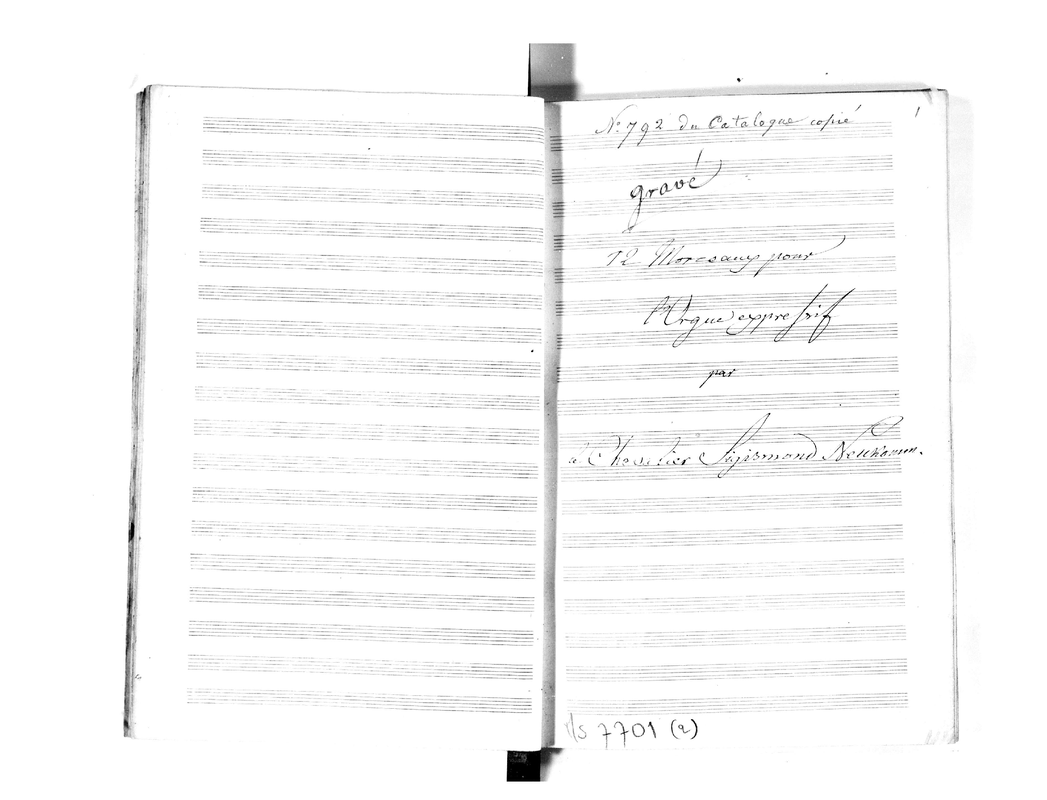 1
No. 792 du Catalogue copié
gravé
12 Morceaux pour
l'Orgue expressif
par
le Chevalier Sigismond Neukomm.
Ms 7701 (2)